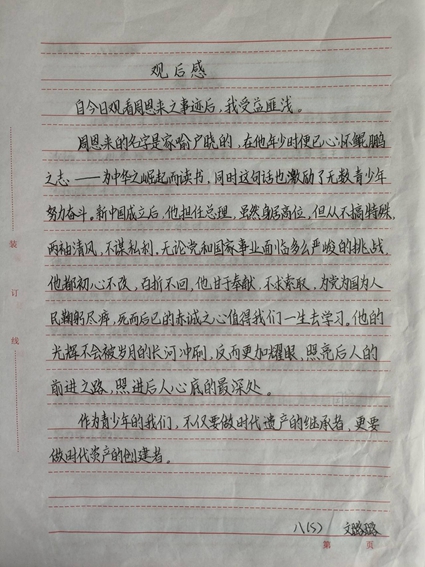 观后感
自今日观看周恩来之事迹后，我受益匪浅。
周恩来的名字是家喻户晓的，在他年少时便已心怀鲲鹏
之志——为中华之崛起而读书，同时这句话也激励了无数青少年
努力奋斗。新中国成立后，他担任总理，虽然身居高位，但从不搞特殊，
两袖清风，不谋私利，无论党和国家事业面临多么严峻的挑战，
他都初心不改，百折不回，他甘于奉献，不求索取，为党为国为人
民鞠躬尽瘁，死而后已的赤诚之心值得我们一生去学习。他的
光辉不会被岁月的长河冲刷，反而更加耀眼，照亮后人的
前进之路，照进后人心底的最深处。
作为青少年的我们，不仅要做时代遗产的继承者，更要
做时代资产的创建者。
八(5) 文璐璐
装
订
线
第 页